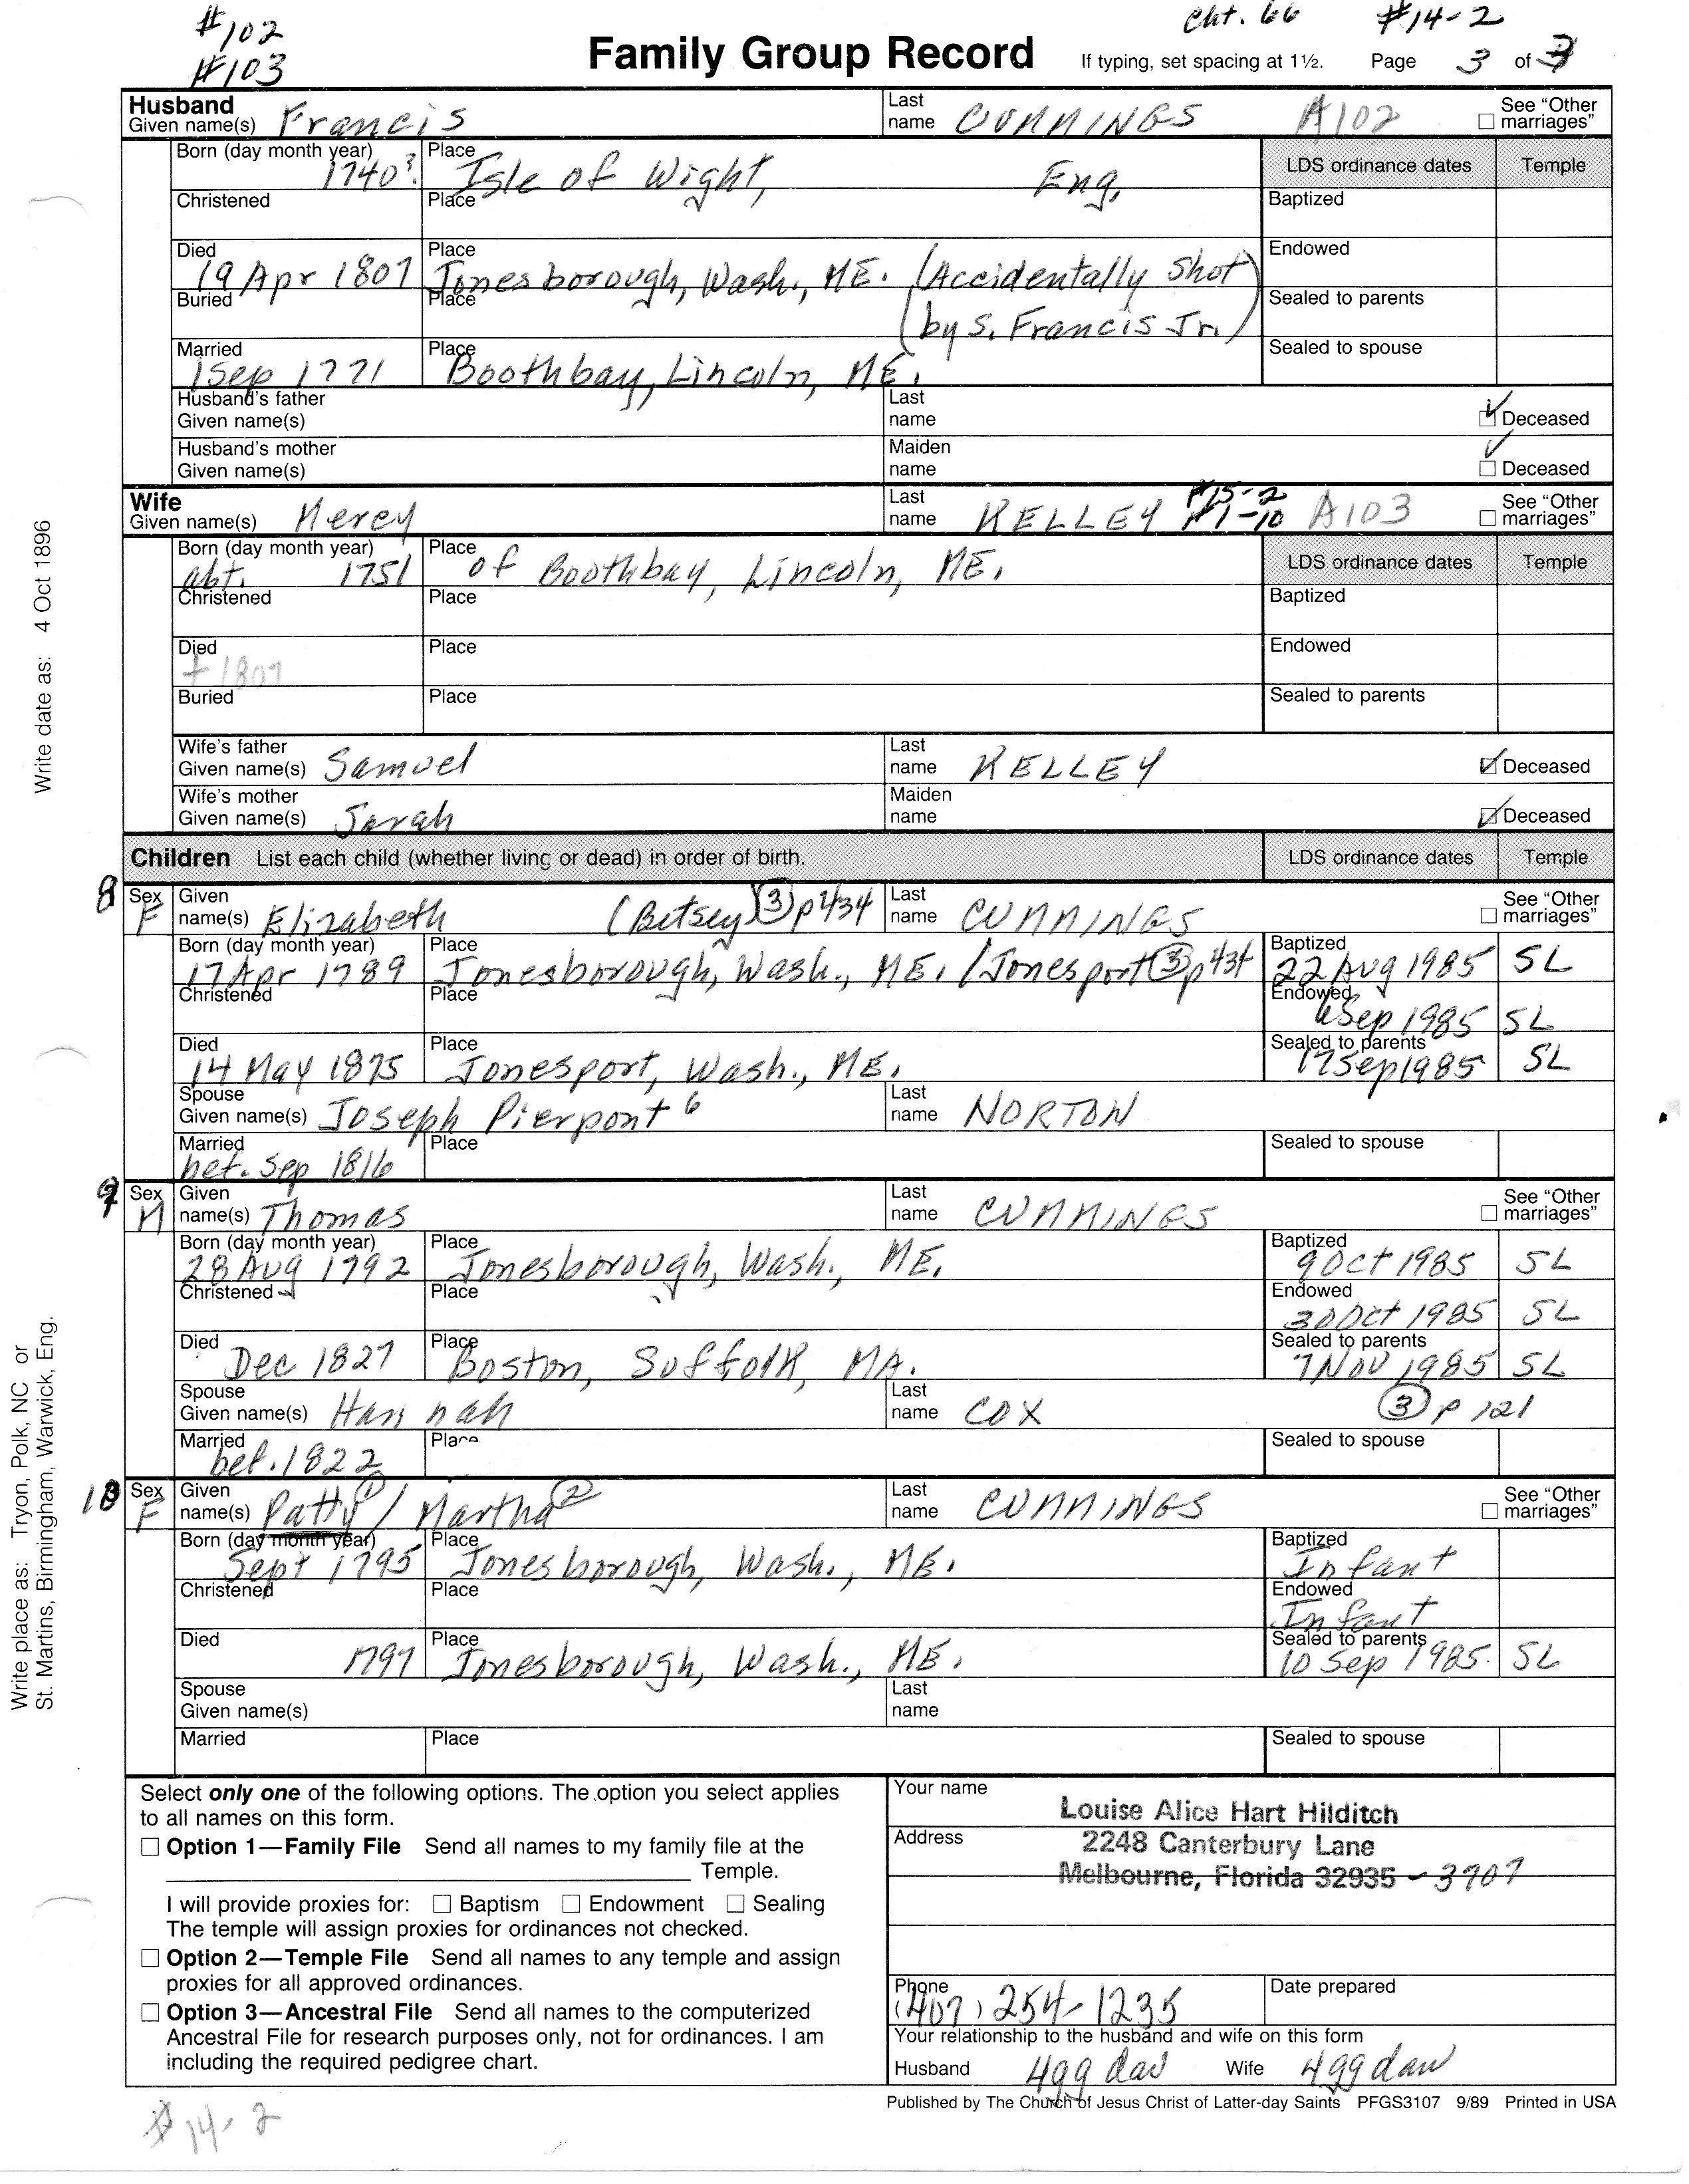 #102 Cht. 66 #14-2
#103 Family Group Record If typing, set spacing at 1½. Page 3 of 3
Husband Given name(s) Francis Last name CUMMINGS A102 See "Other marriages"
Born (day month year) 1740? Place Isle of Wight, Eng. LDS ordinance dates Temple
Christened Place Baptized
Died 19 Apr 1807 Place Jonesborough, Wash., ME. (Accidentally Shot Endowed
Buried Place by S. Francis Jr.) Sealed to parents
Married 1 Sep 1771 Place Boothbay, Lincoln, ME. Sealed to spouse
Husband's father Given name(s) Last name Deceased
Husband's mother Given name(s) Maiden name Deceased
Wife Given name(s) Mercy Last name KELLEY #15-2 #1-10 A103 See "Other marriages"
Born (day month year) abt. 1751 Place of Boothbay, Lincoln, ME. LDS ordinance dates Temple
Christened Place Baptized
Died + 1807 Place Endowed
Buried Place Sealed to parents
Wife's father Given name(s) Samuel Last name KELLEY Deceased
Wife's mother Given name(s) Sarah Maiden name Deceased
Children List each child (whether living or dead) in order of birth. LDS ordinance dates Temple
8 Sex F Given name(s) Elizabeth (Betsey) 3 p434 Last name CUMMINGS See "Other marriages"
Born (day month year) 17 Apr 1789 Place Jonesborough, Wash., ME. / Jonesport 3 p434 Baptized 22 Aug 1985 SL
Christened Place Endowed 6 Sep 1985 SL
Died 14 May 1875 Place Jonesport, Wash., ME. Sealed to parents 17 Sep 1985 SL
Spouse Given name(s) Joseph Pierpont 6 Last name NORTON
Married bef. Sep 1816 Place Sealed to spouse
9 Sex M Given name(s) Thomas Last name CUMMINGS See "Other marriages"
Born (day month year) 28 Aug 1792 Place Jonesborough, Wash., ME. Baptized 9 Oct 1985 SL
Christened Place Endowed 30 Oct 1985 SL
Died Dec 1827 Place Boston, Suffolk, MA. Sealed to parents 7 Nov 1985 SL
Spouse Given name(s) Hannah Last name COX 3 p 121
Married bef. 1822 Place Sealed to spouse
10 Sex F Given name(s) Patty 1 / Martha 2 Last name CUMMINGS See "Other marriages"
Born (day month year) Sept 1795 Place Jonesborough, Wash., ME. Baptized Infant
Christened Place Endowed Infant
Died 1797 Place Jonesborough, Wash., ME. Sealed to parents 10 Sep 1985. SL
Spouse Given name(s) Last name
Married Place Sealed to spouse
Select only one of the following options. The option you select applies
to all names on this form.
Option 1—Family File Send all names to my family file at the
Temple.
I will provide proxies for: Baptism Endowment Sealing
The temple will assign proxies for ordinances not checked.
Option 2—Temple File Send all names to any temple and assign
proxies for all approved ordinances.
Option 3—Ancestral File Send all names to the computerized
Ancestral File for research purposes only, not for ordinances. I am
including the required pedigree chart.
Your name Louise Alice Hart Hilditch
Address 2248 Canterbury Lane
Melbourne, Florida 32935 - 3707
Phone (407) 254-1235 Date prepared
Your relationship to the husband and wife on this form
Husband 4gg dau Wife 4gg dau
Published by The Church of Jesus Christ of Latter-day Saints PFGS3107 9/89 Printed in USA
#14-2
Write date as: 4 Oct 1896
Write place as: Tryon, Polk, NC or
St. Martins, Birmingham, Warwick, Eng.